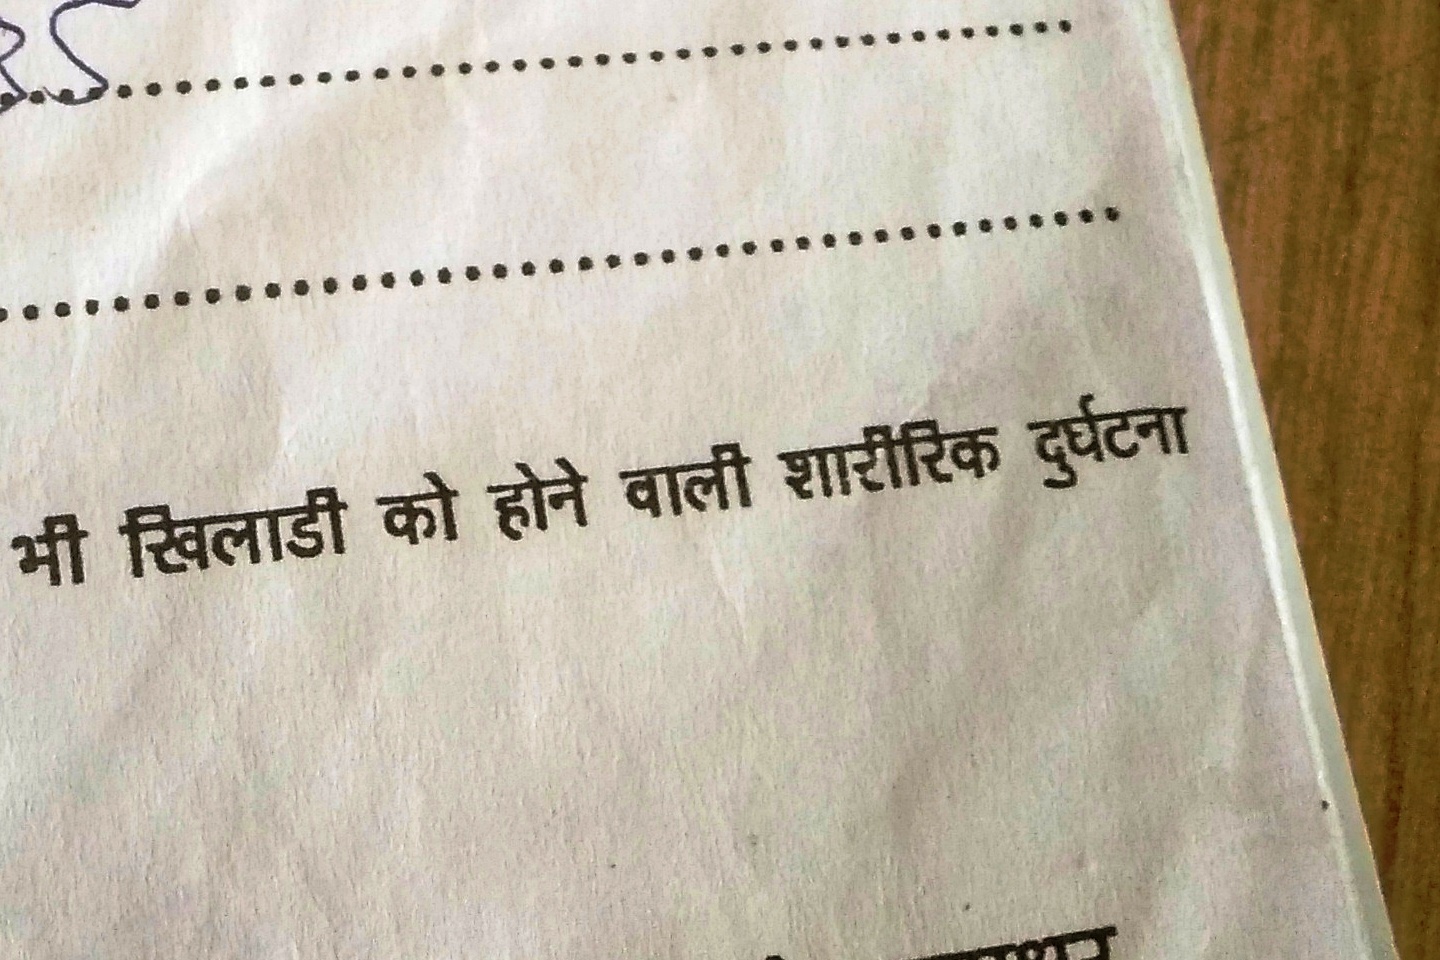 35
भी खिलाडी को होने वाली शारीरिक दुर्घटना